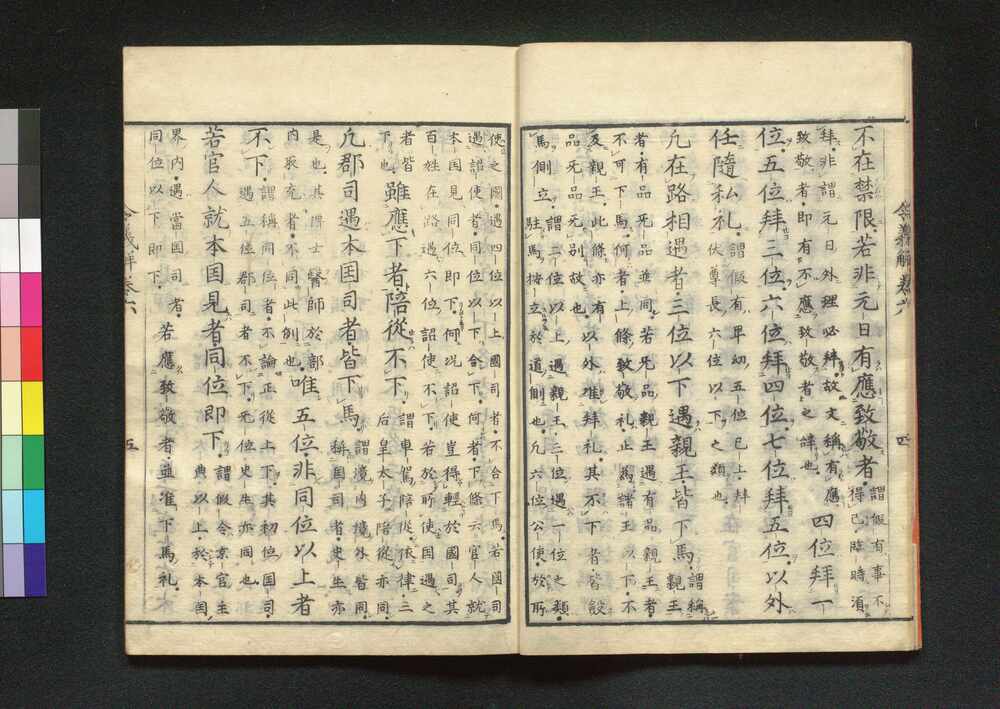 令義解卷六 四
不在禁限若非元日有應致敬者
謂假有事不
得已臨時須
拜非謂元日外理必拜故文稱有應
致敬者即有不應致敬者之肆也
四位拜一
位五位拜三位六位拜四位七位拜五位以外
任隨私礼
謂假有卑幼五位已上拜
伏尊長六位以下之類也
凡在路相遇者三位以下遇親王皆下馬
謂稱
親王
者有品旡品並同若旡品親王遇有品親王者
不可下馬何者上條致敬礼止為諸王以下不
及親王此條亦有
品旡品旡別故也
以外准拜礼其不下者皆斂
馬側立
謂二位以上遇親王三位遇一位之類
駐馬按立於道側也凡六位公使於所
使之國遇四位以上國司者不合下馬若國司
遇詔使者同位以下合下何者下條云官人就
本国見同位即下何况詔使豈得輕於國司其
百姓在路遇六位詔使不下若於所使国遇之
者皆
下也
雖應下者陪從不下
謂車駕陪從依律三
后皇太子陪從亦同
凡郡司遇本国司者皆下馬
謂境内境外皆同
稱国司者史生亦
是也其博士醫師於部
内取充者不同此例也
唯五位非同位以上者
不下
謂稱同位者不論正從上下其初位国司
遇五位郡司者不下旡位史生亦同也
若官人就本国見者同位即下
謂假令京官主
典以上於本国
界内遇當国司者
同位以下即下
若應致敬者並准下馬礼
令義解卷六 五